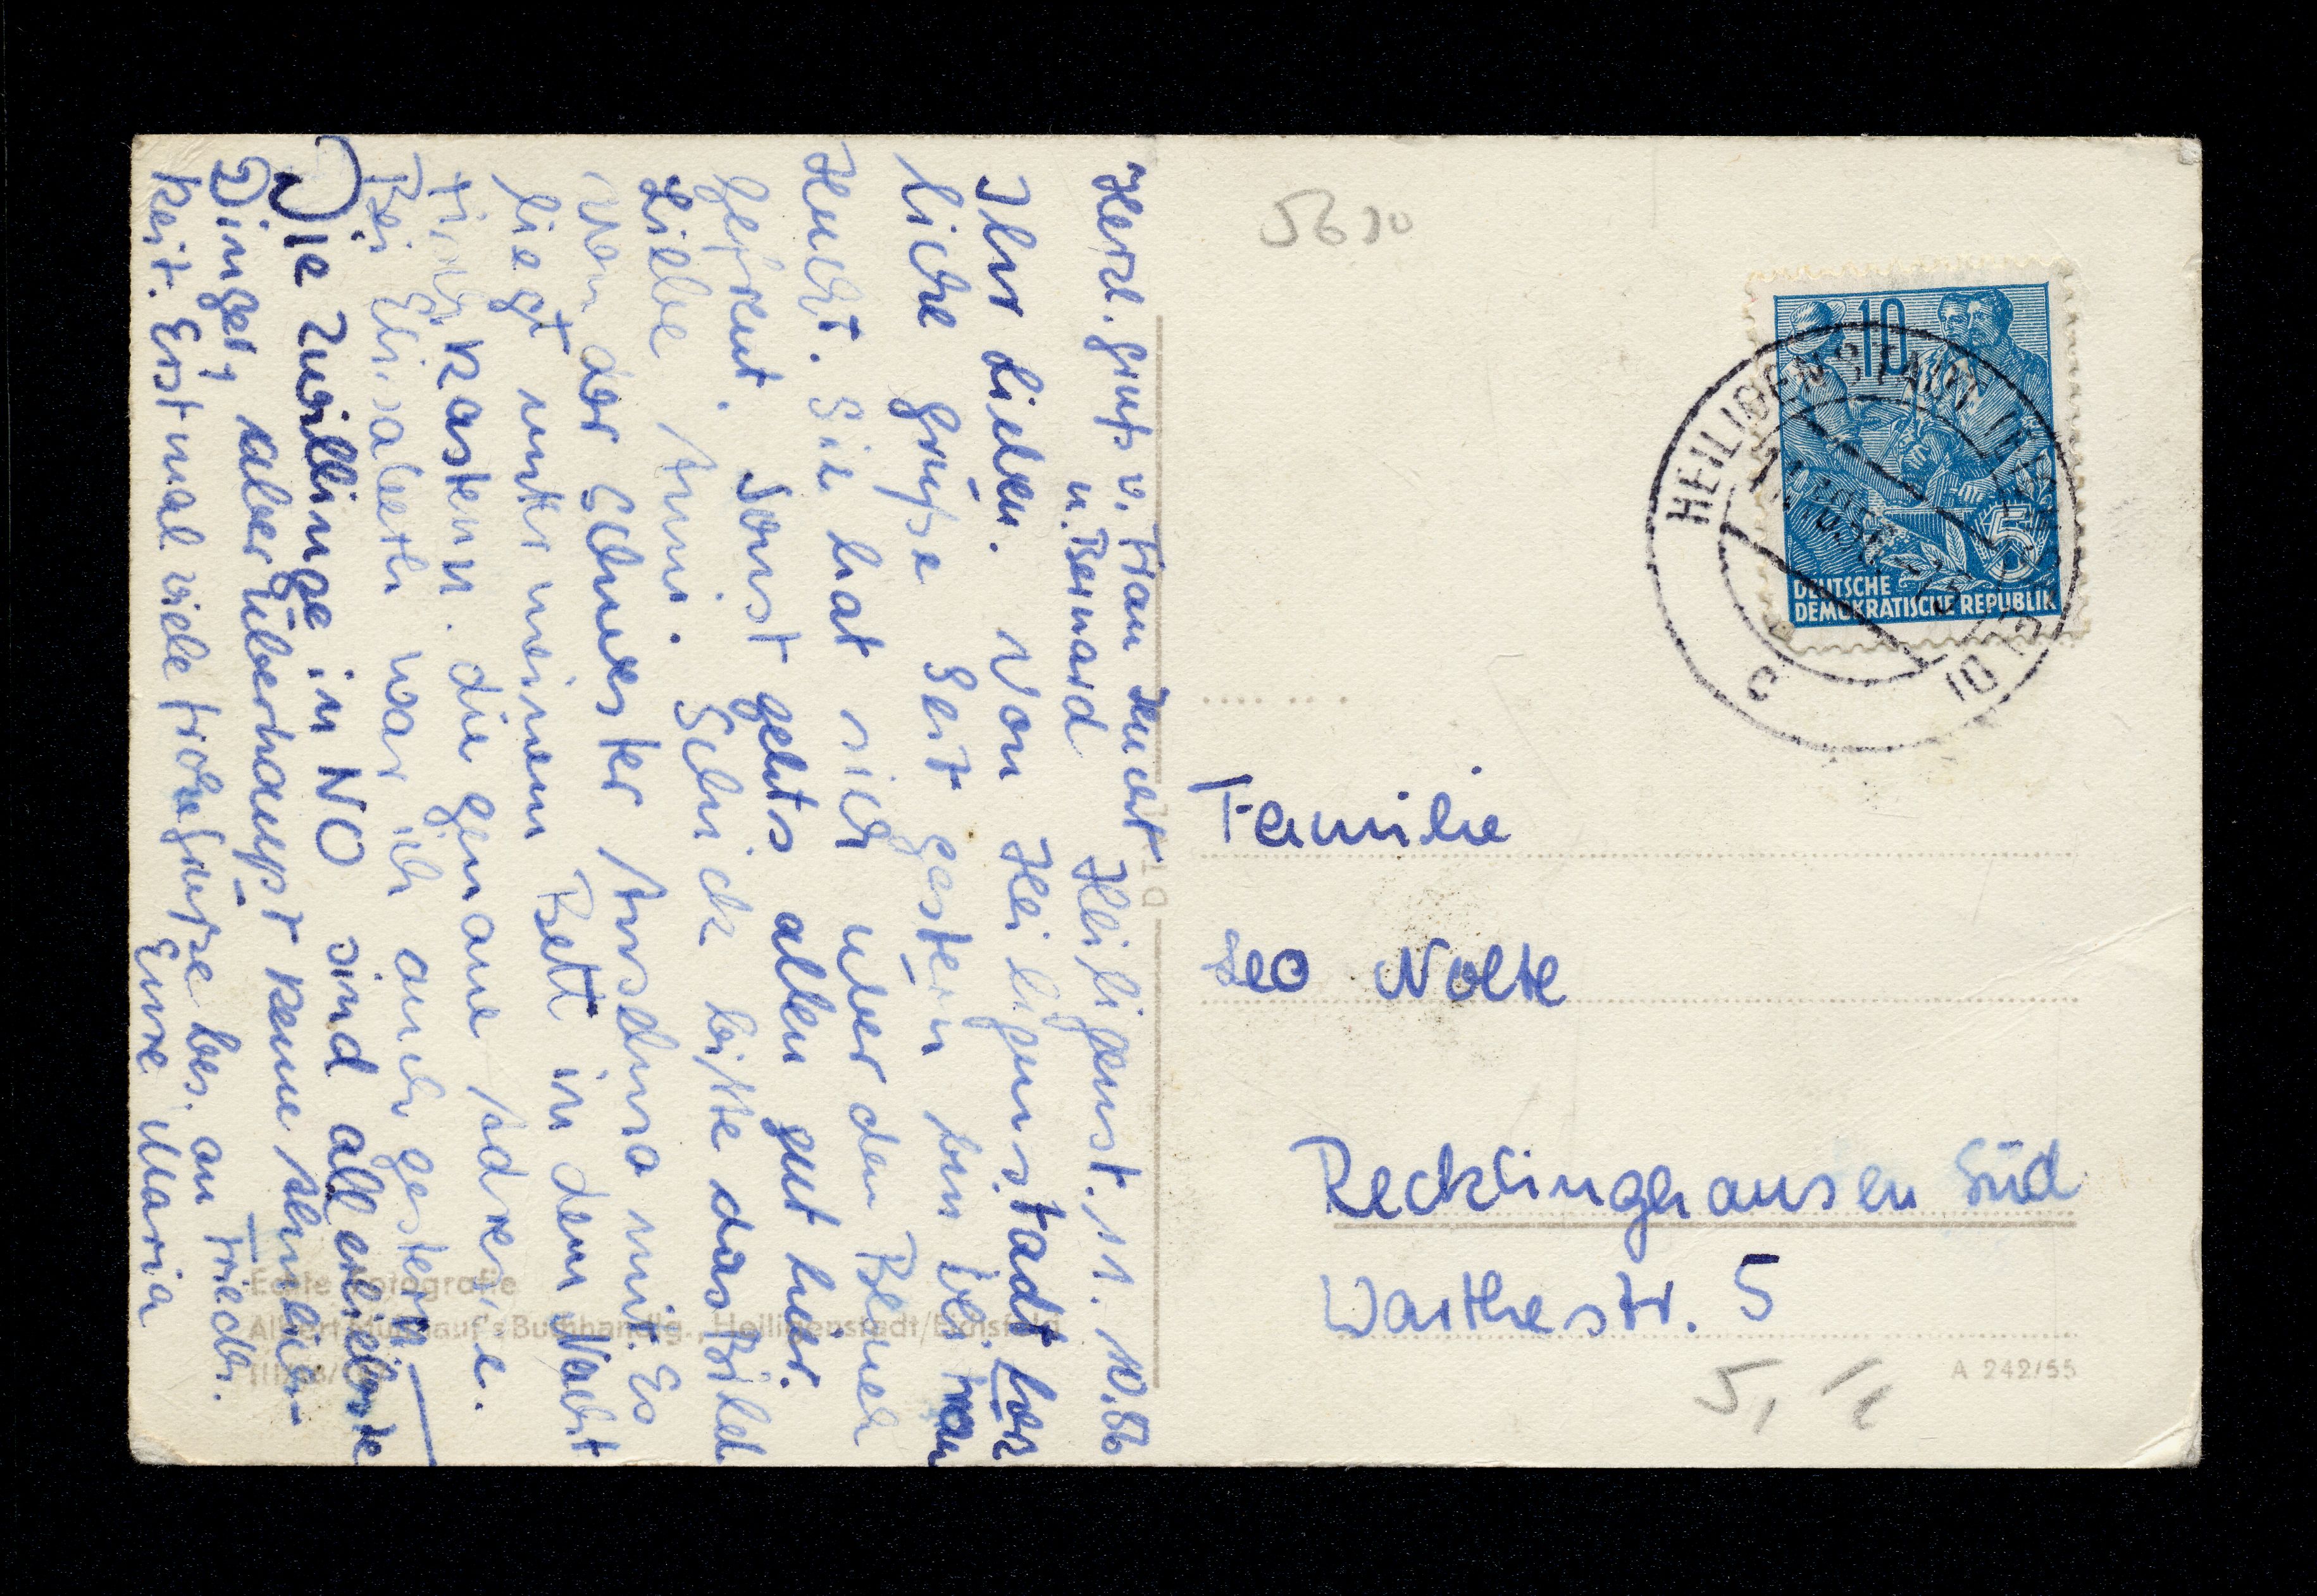 Herzl. Gruß v. Frau
u. Bernard
Heiligenst. 11. 10. 56
Ihr Lieben. Von Heiligenstadt herz
liche Grüße Seit gestern bin bei Frau
. Sie hat sich über den
gefreut. Sonst gehts allen gut hier.
Liebe Anni. Schick bitte das Bild
von der Schwester Anselma mit. Es
liegt unter meinem Bett in dem Nacht
tischkasten. die genaue Adresse.
Bei Elisabeth war ich auch gestern
Die Zwillinge in NO sind allerliebste
Dinger, aber überhaupt keine Ähnlich-
keit. Erstmal viele frohe Grüße bes. an Friedh.
Eure Maria
Echte Fotografie
Heiligenstadt/Eichsfeld
5610
10
5
DEUTSCHE
DEMOKRATISCHE REPUBLIK
HEILIGENSTADT
11.10.56.-15
c
Familie
Leo Nolte
Recklinghausen Süd
Warthestr. 5
5,
A 242/55